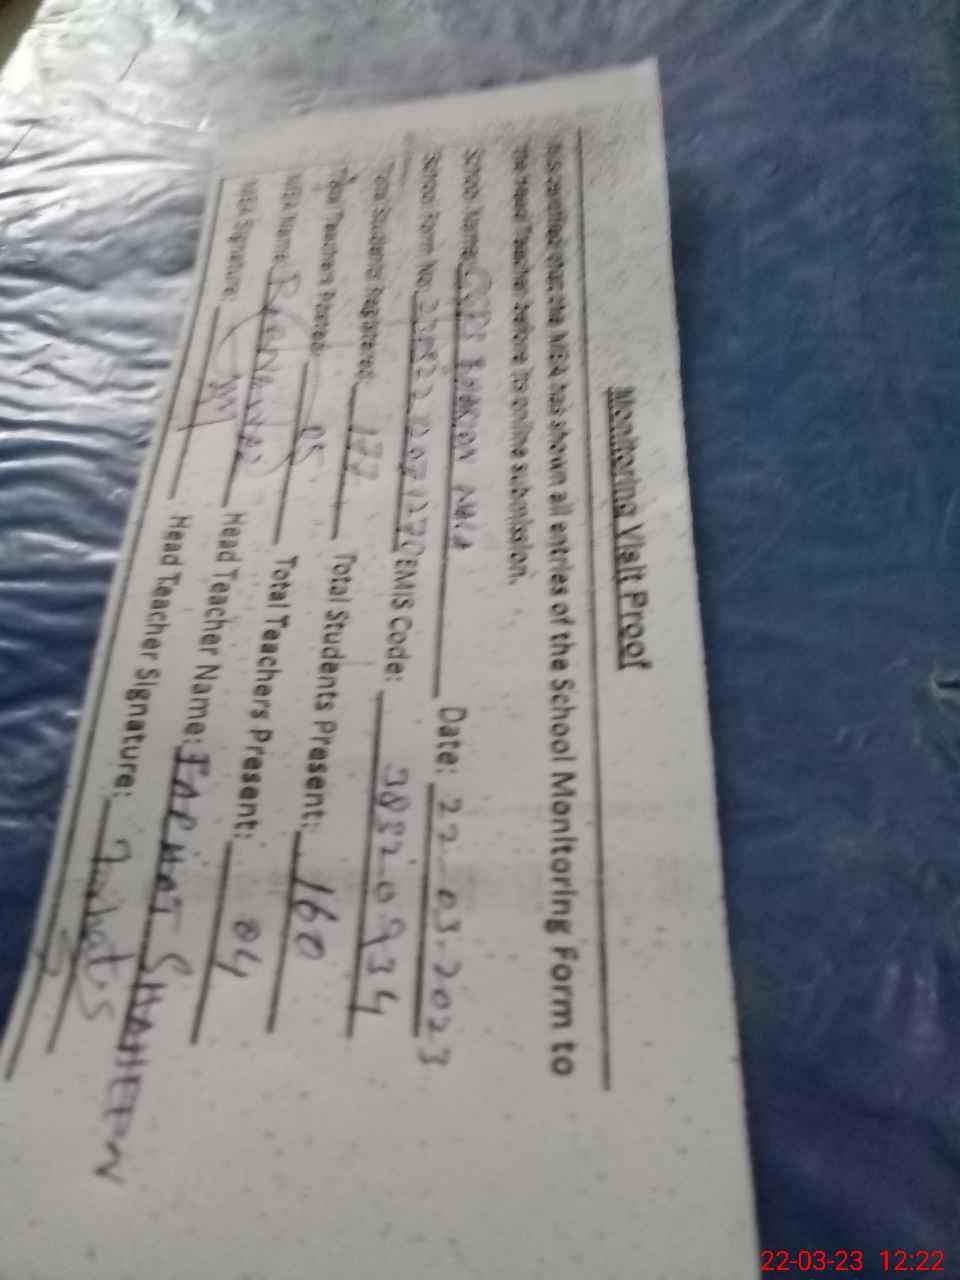 Monitoring Visit Proof
It is certified that the MEA has shown all entries of the School Monitoring Form to
the Head Teacher before its online submission.
School Name: Date: 22-03-2023
School Form No: EMIS Code: 38320934
Total Students Registered: 177 Total Students Present: 160
Total Teachers Posted: 05 Total Teachers Present: 04
MEA Name: Head Teacher Name: FARHAT SHAHEEN
MEA Signature: Head Teacher Signature:
22-03-23 12:22